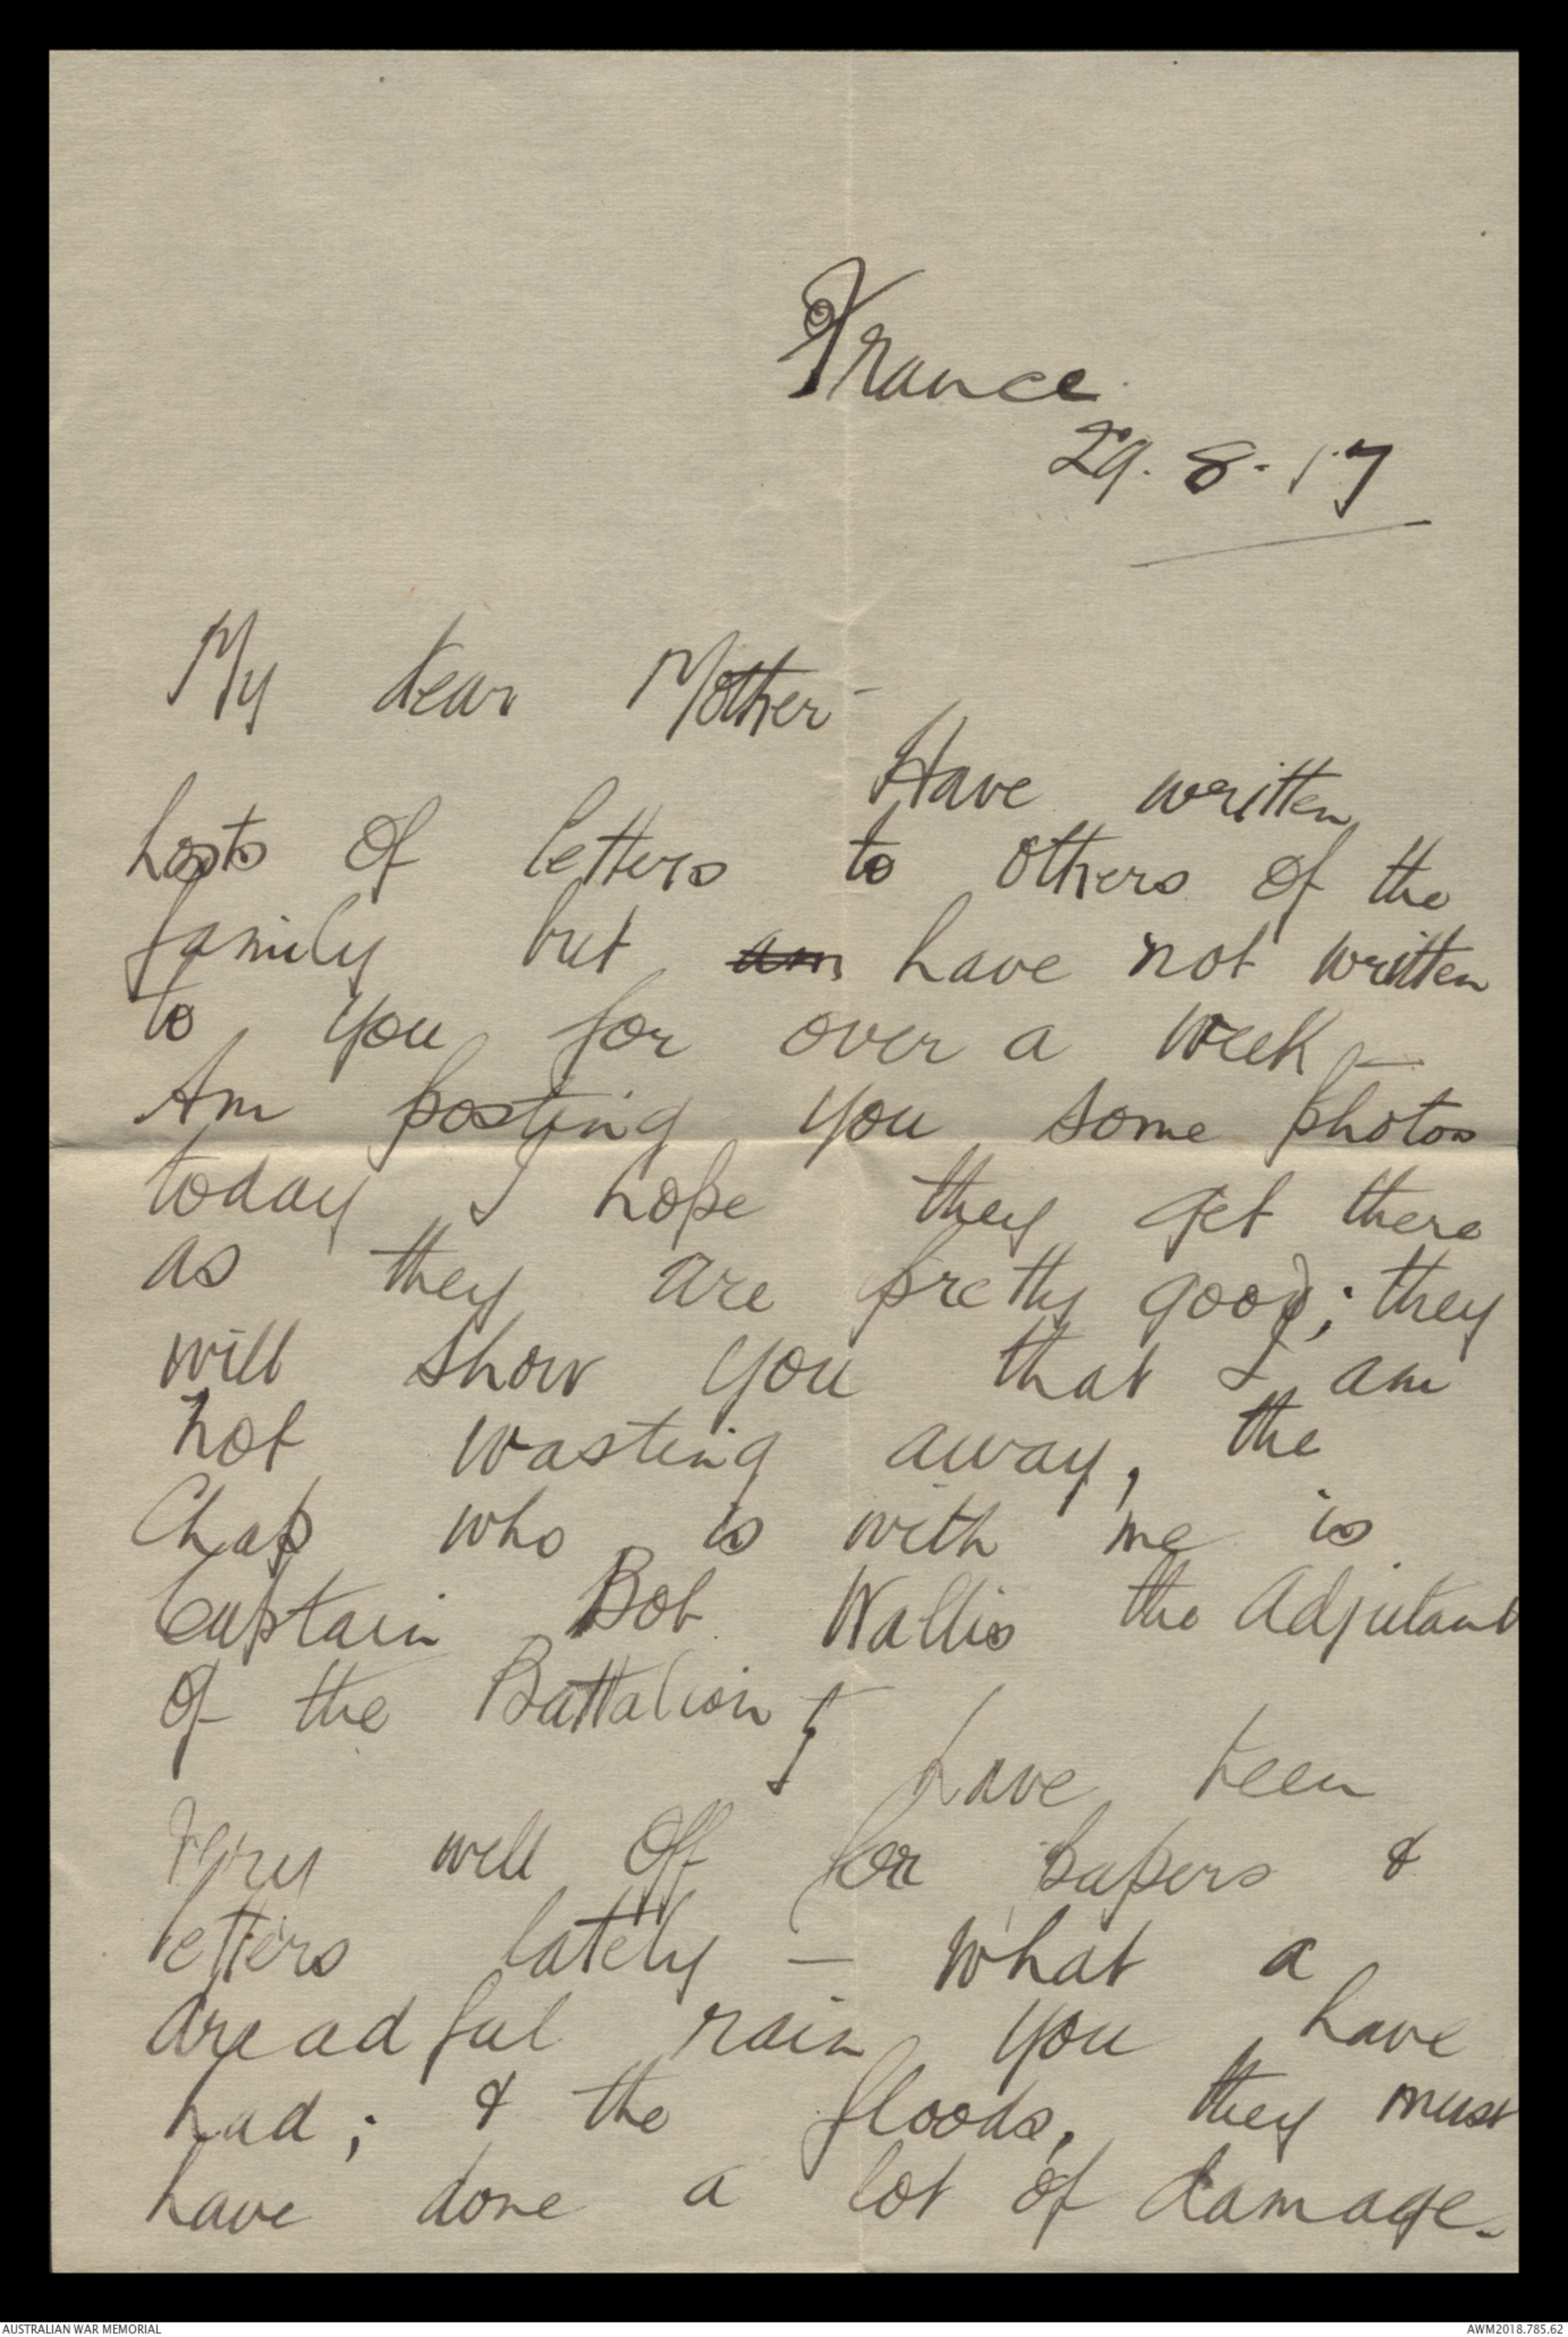 France.
29.8.17
My dear Mother -
Have written
hosts of letters to others of the
family but am have not written
to you for over a week -
Am posting you some photos
today I hope they get there
as they are pretty good; they
will show you that I am
not wasting away, the
Chap who is with me is
Captain Bob Wallis the Adjutant
of the Battalion I
have been
very well off for papers &
letters lately - what a
dreadful rain you have
had; & the floods, they must
have done a lot of damage.
AUSTRALIAN WAR MEMORIAL
AWM2018.785.62